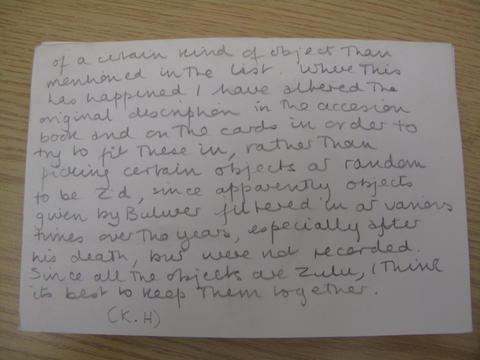 of a certain kind of object than
mentioned in the list. Where this
has happened I have altered the
original description in the accesion
book and on the cards in order to
try to fit these in, rather than
picking certain objects at random
to be Z'd, since apparently objects
given by Bulwer filtered in at various
times over the years, especially after
his death, but were not recorded.
Since all the objects are Zulu, I think
its best to keep them together.
(K.H)